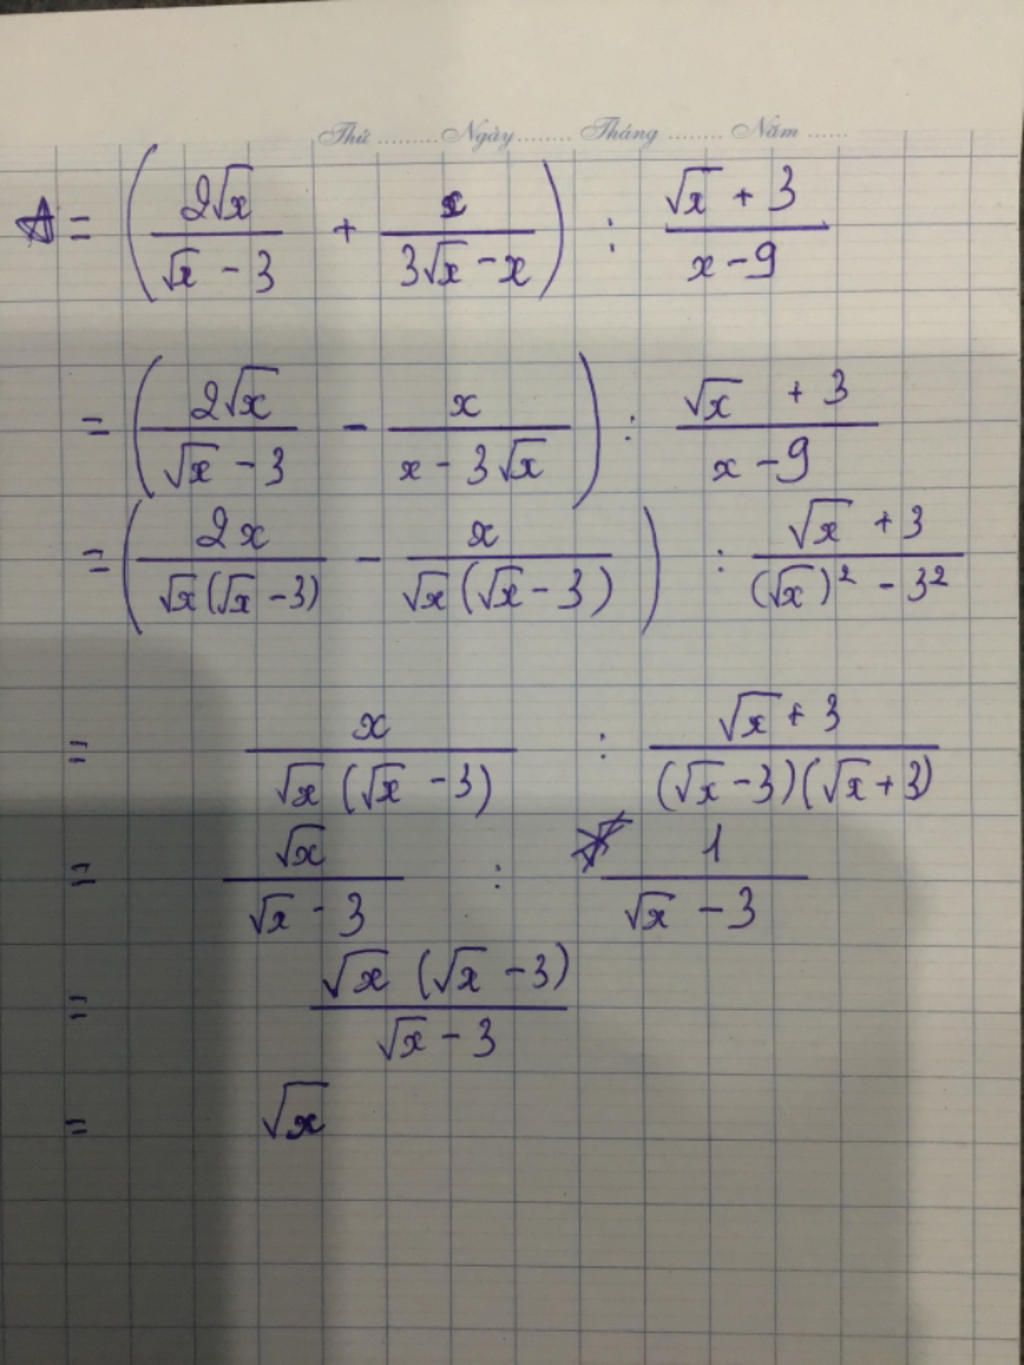 Thứ ......... Ngày ........ Tháng ........ Năm ......
A = ( 2√x / (√x - 3) + x / (3√x - x) ) : (√x + 3) / (x - 9)
= ( 2√x / (√x - 3) - x / (x - 3√x) ) : (√x + 3) / (x - 9)
= ( 2x / (√x (√x - 3)) - x / (√x (√x - 3)) ) : (√x + 3) / ((√x)² - 3²)
= x / (√x (√x - 3)) : (√x + 3) / ((√x - 3)(√x + 3))
= √x / (√x - 3) : 1 / (√x - 3)
= √x (√x - 3) / (√x - 3)
= √x